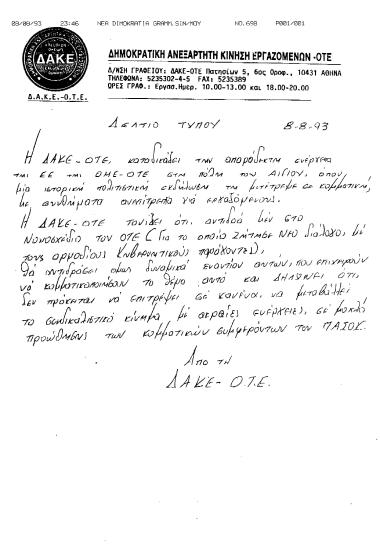 09/08/93 23:46 NEA DIMOKRATIA GRAMM.SIN/MOY NO.698 P001/001
ΔΑΚΕ
Δ.Α.Κ.Ε.-Ο.Τ.Ε.
ΔΗΜΟΚΡΑΤΙΚΗ ΑΝΕΞΑΡΤΗΤΗ ΚΙΝΗΣΗ ΕΡΓΑΖΟΜΕΝΩΝ -ΟΤΕ
Δ/ΝΣΗ ΓΡΑΦΕΙΟΥ: ΔΑΚΕ-ΟΤΕ Πατησίων 5, 6ος Οροφ., 10431 ΑΘΗΝΑ
ΤΗΛΕΦΩΝΑ: 5235302-4-5 FAX: 5235389
ΩΡΕΣ ΓΡΑΦ.: Εργασ.Ημερ. 10.00-13.00 και 18.00-20.00
ΔΕΛΤΙΟ ΤΥΠΟΥ 8-8-93
Η ΔΑΚΕ-ΟΤΕ, καταδικάζει την απαράδεκτη ενέργεια
της ΕΕ της ΟΜΕ-ΟΤΕ στη πόλη του ΑΙΓΙΟΥ, όπου
μια ιστορική πολιτιστική εκδήλωση τη μετέτρεψε σε κομματική,
με συνθήματα ανεπίτρεπτα για εργαζομένους.
Η ΔΑΚΕ-ΟΤΕ τονίζει ότι αντιδρά μεν στο
Νομοσχέδιο του ΟΤΕ (για το οποίο ΖΗΤΗΣΕ ΝΕΟ διάλογο, με
τους αρμοδίους Κυβερνητικούς παράγοντες),
θα αντιδράσει όμως δυναμικά εναντίον αυτών, που επιχειρούν
να κομματικοποιήσουν το θέμα αυτό και ΔΗΛΩΝΕΙ ότι,
δεν πρόκειται να επιτρέψει σε κανένα, να μεταβάλλει
το συνδικαλιστικό κίνημα, με ακραίες ενέργειες, σε μοχλό
προώθησης των κομματικών συμφερόντων του ΠΑΣΟΚ.
Από τη
ΔΑΚΕ-Ο.Τ.Ε.